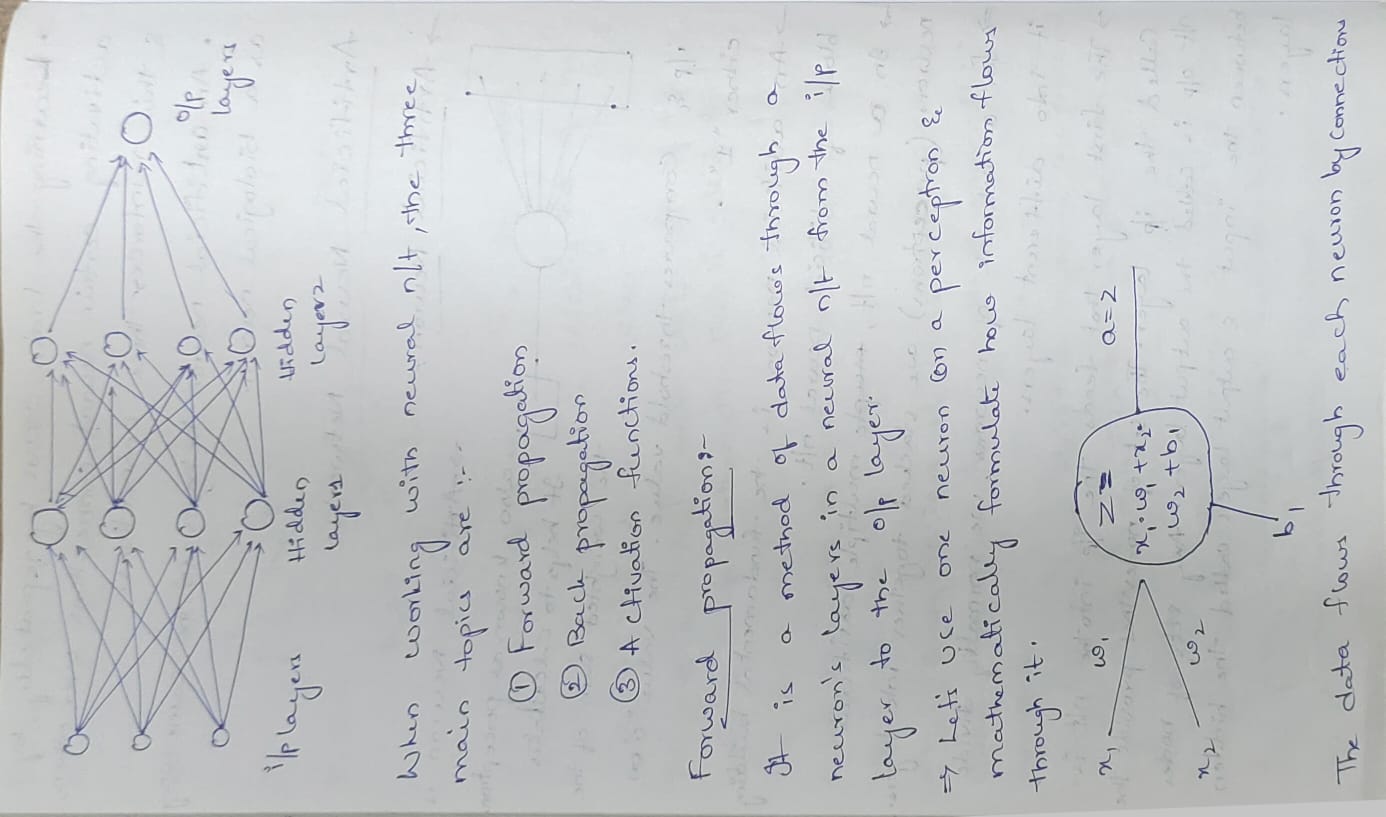 i/p layers
Hidden
layer1
Hidden
layer2
o/p
layers
When working with neural n/t, the three
main topics are :-
① Forward propagation
② Back propagation
③ Activation functions.
Forward propagation:-
It is a method of data flows through a
neuron's layers in a neural n/t from the i/p
layer to the o/p layer.
⇒ Let's use one neuron (or) a perceptron &
mathematically formulate how information flows
through it.
x₁ w₁
z=
x₁·w₁+x₂·
w₂+b₁
a=z
x₂ w₂
b₁
The data flows through each neuron by connections